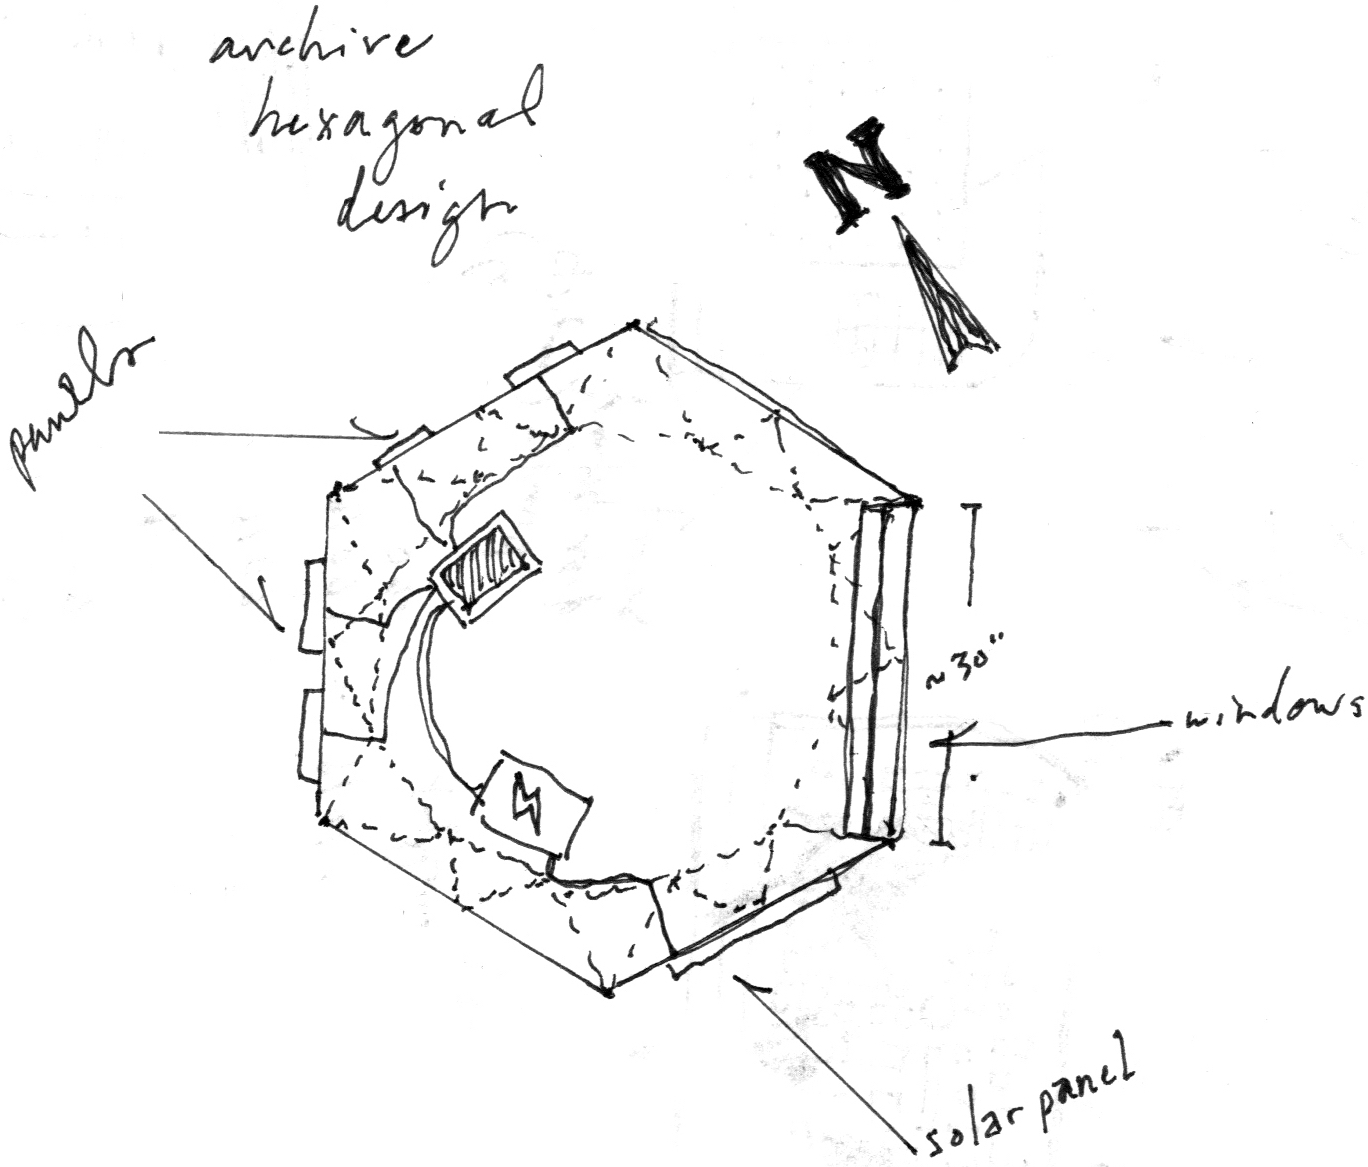 archive
hexagonal
design
N
panels
~30"
windows
solar panel